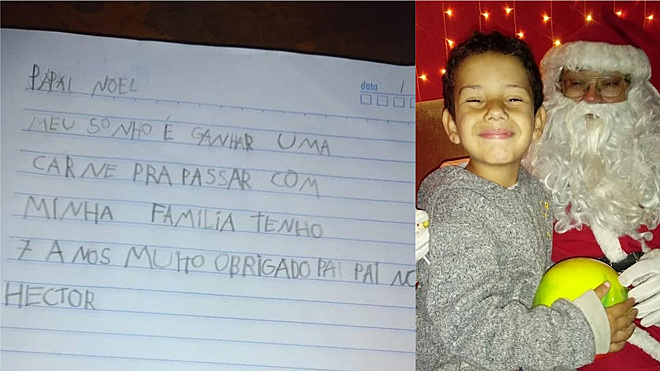 data /
PAPAI NOEL
MEU SONHO É GANHAR UMA
CARNE PRA PASSAR COM
MINHA FAMILIA TENHO
7 ANOS MUITO OBRIGADO PAI PAI NO
HECTOR